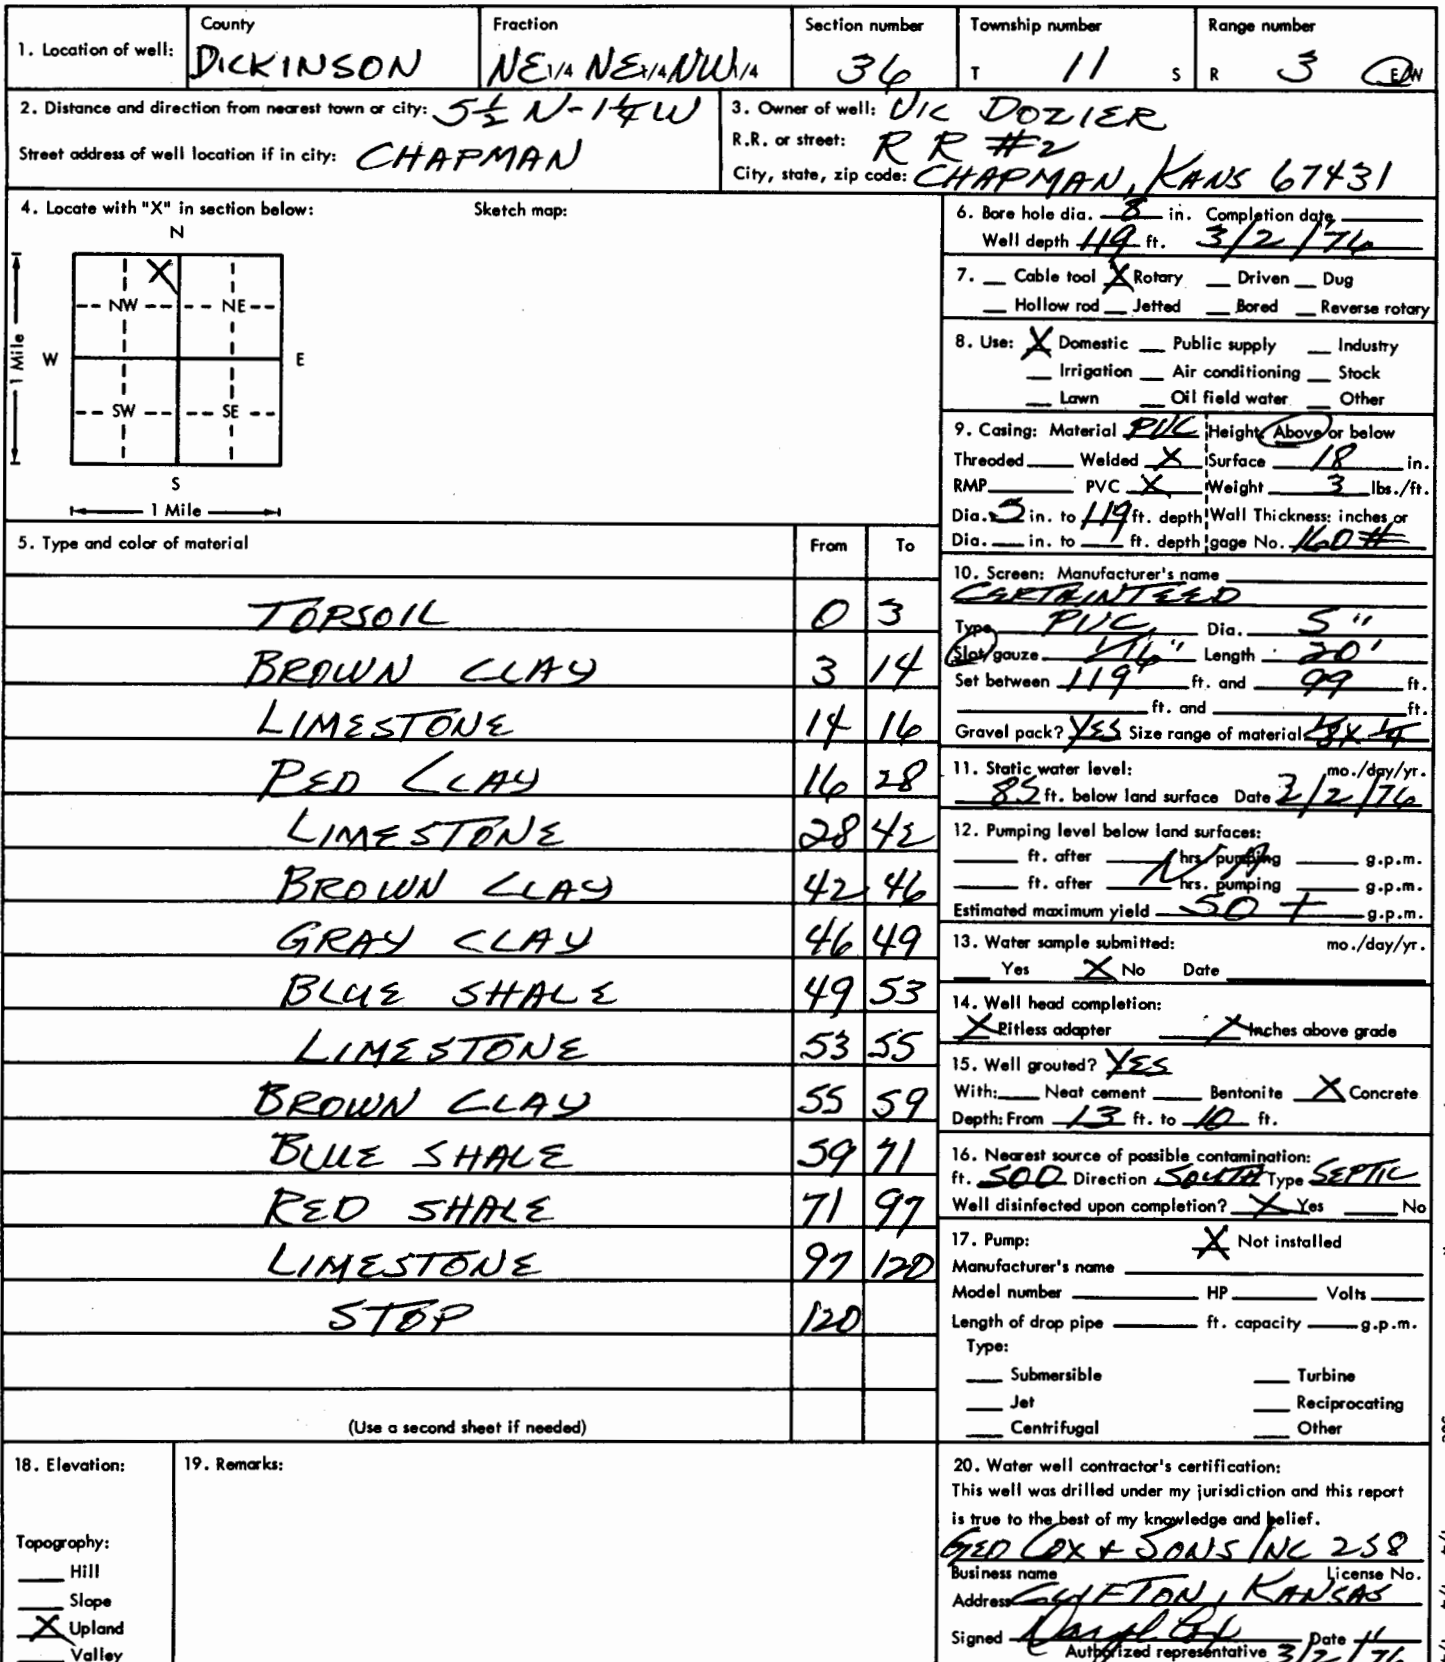 1. Location of well:
County DICKINSON
Fraction NE 1/4 NE 1/4 NW 1/4
Section number 36
Township number T 11 S
Range number R 3 E/W
2. Distance and direction from nearest town or city: 5½ N-1¼ W
Street address of well location if in city: CHAPMAN
3. Owner of well: VIC DOZIER
R.R. or street: RR #2
City, state, zip code: CHAPMAN, KANS 67431
4. Locate with "X" in section below: Sketch map:
N
X
NW NE
W E
1 Mile
SW SE
S
1 Mile
5. Type and color of material From To
TOPSOIL 0 3
BROWN CLAY 3 14
LIMESTONE 14 16
RED CLAY 16 28
LIMESTONE 28 42
BROWN CLAY 42 46
GRAY CLAY 46 49
BLUE SHALE 49 53
LIMESTONE 53 55
BROWN CLAY 55 59
BLUE SHALE 59 71
RED SHALE 71 97
LIMESTONE 97 120
STOP 120
(Use a second sheet if needed)
6. Bore hole dia. 8 in. Completion date
Well depth 119 ft. 3/2/76
7. Cable tool X Rotary Driven Dug
Hollow rod Jetted Bored Reverse rotary
8. Use: X Domestic Public supply Industry
Irrigation Air conditioning Stock
Lawn Oil field water Other
9. Casing: Material PVC Height: Above or below
Threaded Welded X Surface 18 in.
RMP PVC X Weight 3 lbs./ft.
Dia. 5 in. to 119 ft. depth Wall Thickness: inches or
Dia. in. to ft. depth gage No. 160#
10. Screen: Manufacturer's name
CERTAINTEED
Type PVC Dia. 5"
Slot/gauze 1/16" Length 20'
Set between 119 ft. and 99 ft.
ft. and ft.
Gravel pack? YES Size range of material 1/8 X 1/4
11. Static water level: mo./day/yr.
85 ft. below land surface Date 3/2/76
12. Pumping level below land surfaces:
ft. after N/A hrs. pumping g.p.m.
ft. after hrs. pumping g.p.m.
Estimated maximum yield 50 + g.p.m.
13. Water sample submitted: mo./day/yr.
Yes X No Date
14. Well head completion:
X Pitless adapter X Inches above grade
15. Well grouted? YES
With: Neat cement Bentonite X Concrete
Depth: From 13 ft. to 10 ft.
16. Nearest source of possible contamination:
ft. 500 Direction SOUTH Type SEPTIC
Well disinfected upon completion? X Yes No
17. Pump: X Not installed
Manufacturer's name
Model number HP Volts
Length of drop pipe ft. capacity g.p.m.
Type:
Submersible Turbine
Jet Reciprocating
Centrifugal Other
18. Elevation:
Topography:
Hill
Slope
X Upland
Valley
19. Remarks:
20. Water well contractor's certification:
This well was drilled under my jurisdiction and this report
is true to the best of my knowledge and belief.
GEO COX & SONS INC 258
Business name License No.
Address CLIFTON, KANSAS
Signed Daryl Cox Date
Authorized representative 3/2/76